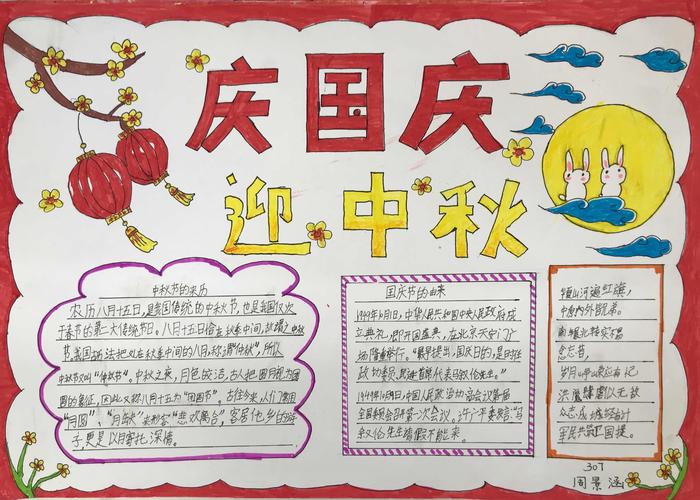 庆国庆
迎中秋
中秋节的来历
农历八月十五日，是我国传统的中秋节，也是我国仅次
于春节的第二大传统节日。八月十五日恰在秋季中间，故谓之中秋
节，我国历法把处在秋季中间的八月，称谓“仲秋”，所以
中秋节又叫“仲秋节”。中秋之夜，月色皎洁，古人把圆月视为团
圆的象征，因此又称八月十五为“团圆节”。古往今来，人们常用
“月圆”、“月缺”来形容“悲欢离合”，客居他乡的游
子，更是以月寄托深情。
国庆节的由来
1949年10月1日，中华人民共和国中央人民政府成
立典礼，即开国盛典，在北京天安门广
场隆重举行。“最早提出，国庆日的，是
政协委员，首席代表马叙伦先生。”
1949年10月9日，中国人民政协
全国委员会召开第一次会议。许广平委员发言：“马
叙伦先生请假不能来。
河遍红旗，
岁月
众志成城
军民共
307
周景涵